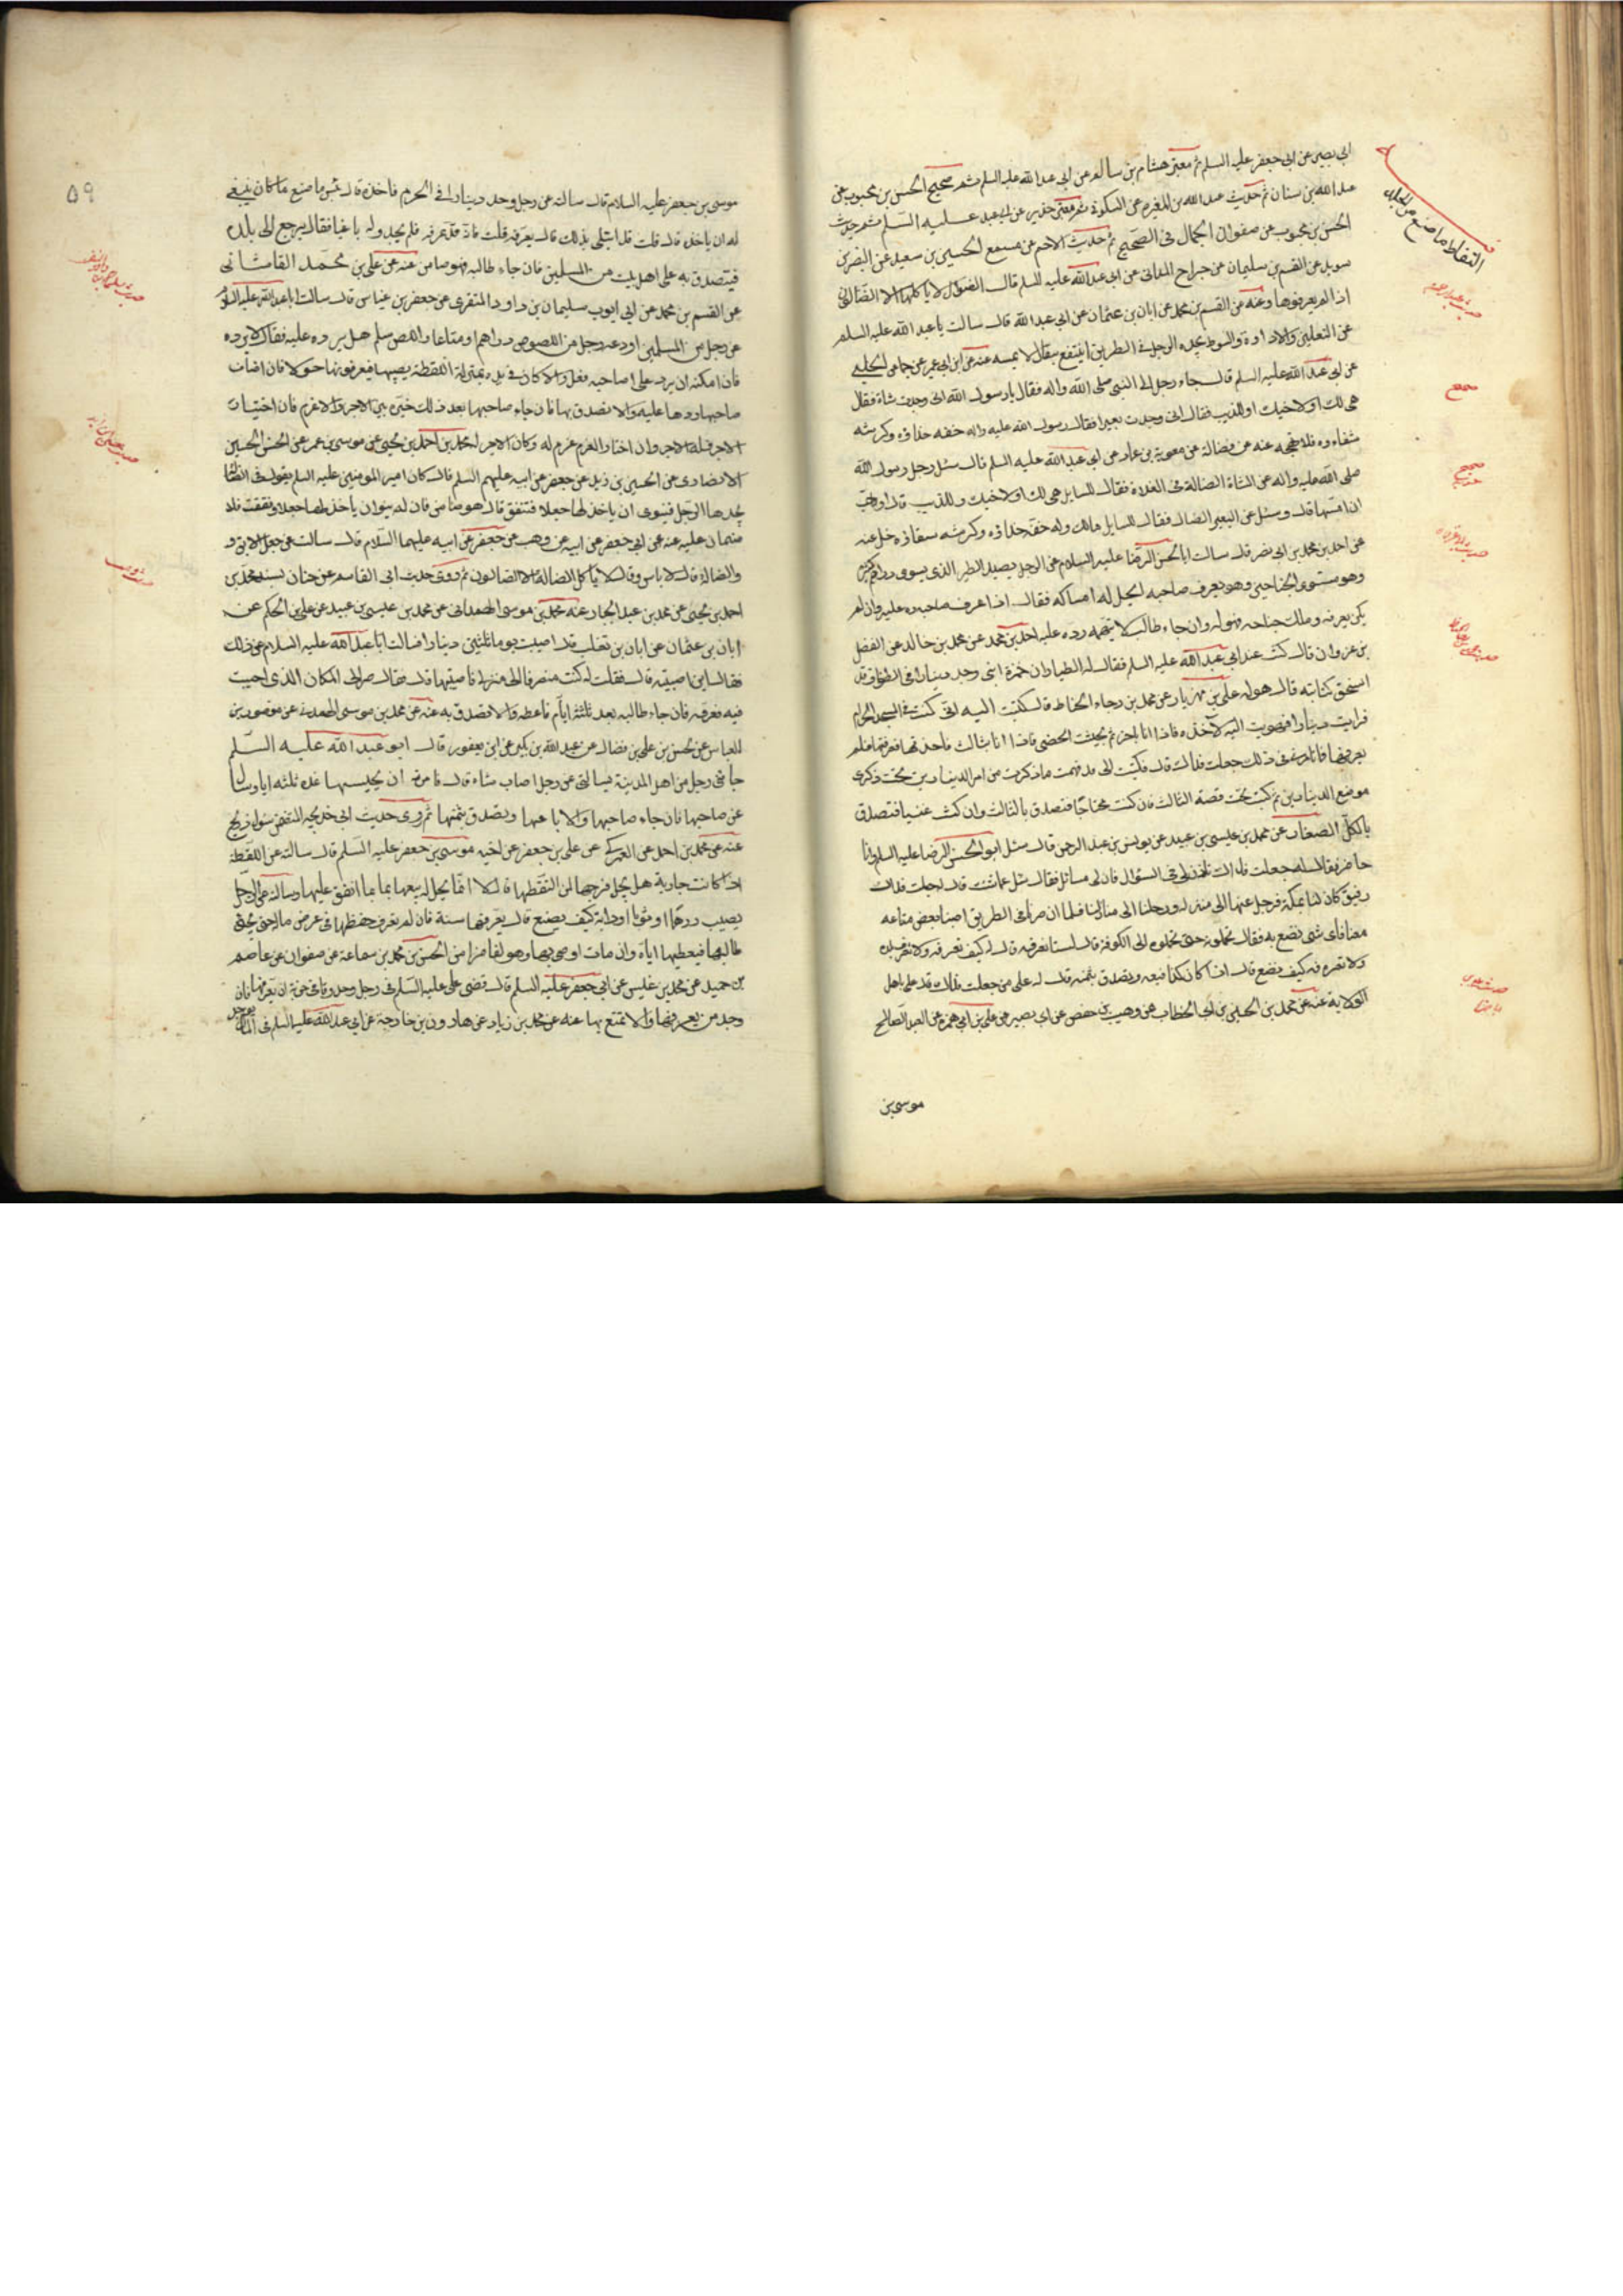 ابى بصير عن ابى جعفر عليه السلم ثم معتبر هشام بن سالم عن ابى عبد الله عليه السلم ثم صحيح الحسن بن محبوب عن
عبد الله بن سنان ثم حديث عبد الله بن المغيره عن السكونى عن ابى عبد عليه السلم ثم حديث
الحسن بن محبوب عن صفوان الجمال فى الصحيح ثم حديث الاصم عن مسمع الحسين بن سعيد عن النضر بن
سويد عن القسم بن سليمان عن جراح المداينى عن ابى عبد الله عليه السلم قال الضوال لا ياكلها الا الضالون
اذا لم يعرفوها وعنه عن القسم بن محمد عن ابان بن عثمان عن ابى عبد الله قال سالت ابا عبد الله عليه السلم
عن النعلين والاداوة والسوط يجده الرجل فى الطريق اينتفع به قال لا يمسه عنه عن ابن ابى عمير عن حماد عن الحلبى
عن ابى عبد الله عليه السلم قال جاء رجل الى النبى صلى الله واله فقال يا رسول الله انى وجدت شاة فقال
هى لك او لاخيك او للذيب فقال انى وجدت بعيرا فقال رسول الله عليه واله خفه حذاؤه وكرشه
سقاءه فلا تهجه عنه عن فضالة عن معوية بن عمار عن ابى عبد الله عليه السلم قال سئل رجل رسول الله
صلى الله عليه واله عن الشاة الضالة فى الفلاة فقال للسايل هى لك او لاخيك او للذيب قال وما احب
ان امسها قال وسئل عن البعير الضال فقال للسايل مالك وله خفه حذاؤه وكرشه سقاؤه خل عنه
عن احمد بن محمد بن ابى نصر قال سالت ابا الحسن الرضا عليه السلام عن الرجل يصيد الطير الذى يسوى دراهم كثيرة
وهو مستوى الجناحين وهو يعرف صاحبه ايحل له امساكه فقال اذا عرف صاحبه رده عليه وان لم
يكن يعرفه وملك جناحه فهو له وان جاء طالب لا يتهمه رده عليه احمد بن محمد عن محمد بن خالد عن الفضل
بن غزوان قال كنت عند ابى عبد الله عليه السلم فقال له الطيار ان حمزة ابنى وجد دينارا فى الطواف قد
انسحق كتابته قال هو له على بن مهزيار عن محمد بن رجاء الخياط قال كتبت اليه انى كنت فى المسجد الحرام
فرايت دينارا فاهويت اليه لاخذه فاذا انا باخر ثم بحثت الحصى فاذا انا بثالث فاخذتها فعرفتها فلم
يعرفها احد فما ترى فى ذلك جعلت فداك قال فكتب الى قد فهمت ما ذكرت من امر الدينارين تحت ذكرى
موضع الدينارين ثم كتب تحت قصة الثالث فان كنت محتاجا فتصدق بالثالث وان كنت غنيا فتصدق
بالكل الصفار عن محمد بن عيسى بن عبيد عن يونس بن عبد الرحمن قال سئل ابو الحسن الرضا عليه السلم وانا
حاضر فقال له جعلت فداك تاذن لى فى السؤال فان لى مسائل فقال سل عما شئت قال له جعلت فداك
رفيق كان لنا بمكة فرحل عنها الى منزله ورحلنا الى منازلنا فلما ان صرنا فى الطريق اصبنا بعض متاعه
معنا فاى شئ نصنع به فقال تحملونه حتى تحملوه الى الكوفة قال لسنا نعرفه قال له كيف نعرفه ولا نعرف بلده
ولا نعرفه كيف نصنع قال اذا كان كذا فبعه وتصدق بثمنه قال له على من جعلت فداك قال على اهل
الولاية عنه عن محمد بن الحسين بن ابى الخطاب عن وهيب بن حفص عن ابى بصير عن على بن ابى حمزه عن العبد الصالح
موسى بن
٥٩
موسى بن جعفر عليه السلام قال سالته عن رجل وجد دينارا فى الحرم فاخذه قال بئس ما صنع ما كان ينبغى
له ان ياخذه قال قلت قد ابتلى بذلك قال يعرفه قلت فانه قد عرفه فلم يجد له باغيا فقال يرجع الى بلده
فيتصدق به على اهل بيت من المسلمين فان جاء طالبه فهو ضامن عنه عن على بن محمد القاسانى
عن القسم بن محمد عن ابى ايوب سليمان بن داود المنقرى عن حفص بن غياث قال سالت ابا عبد الله عليه السلم
عن رجل من المسلمين اودعه رجل من اللصوص دراهم او متاعا واللص مسلم هل يرده عليه فقال لا يرده
فان امكنه ان يرد على اصاحبه فعل والا كان فى يده بمنزلة اللقطة يصيبها فيعرفونها حولا فان اصاب
صاحبها ردها عليه والا تصدق بها فان جاء صاحبها بعد ذلك خيره بين الاجر والغرم فان اختار
الاجر فله الاجر وان اختار الغرم غرم له وكان الاجر له محمد بن احمد بن يحيى عن موسى بن عمر عن الحسين
الانصارى عن الحسين بن زيد عن جعفر عن ابيه عليهم السلم قال كان امير المومنين عليه السلم يقول فى الضالة
يجدها الرجل فينوى ان ياخذ لها جعلا فتنفق قال هو ضامن فان لم ينوان ياخذ لها جعلا ونفقت فلا
ضمان عليه عنه عن ابى جعفر عن ابيه عن وهب عن جعفر عن ابيه عليهما السلام قال سالته عن جعل الابق و
والضالة قال لا باس وقال لا ياكل الضالة الا الضالون ثم روى حديث ابى القاسم عن حنان بسند محمد بن
احمد بن يحيى عن محمد بن عبد الجبار عنه محمد بن موسى الهمدانى عن محمد بن عيسى بن عبيد عن على بن الحكم عن
ابان بن عثمان عن ابان بن تغلب قال اصبت يوما ثلثين دينارا فسالت ابا عبد الله عليه السلام عن ذلك
فقال اين اصبته قال فقلت له كنت منصرفا الى منزلى فاصبتها قال فقال صر الى المكان الذى اصبت
فيه فعرفه فان جاء طالبه بعد ثلثة ايام فاعطه والا تصدق به عنه عن محمد بن موسى الهمدانى عن منصور بن
العباس عن الحسن بن على بن فضال عن عبد الله بن بكير عن ابن يعفور قال ابو عبد الله عليه السلم
جاءنى رجل من اهل المدينة يسالنى عن رجل اصاب شاة قال فامرته ان يحبسها عنده ثلثه ايام ويسال
عن صاحبها فان جاء صاحبها والا باعها وتصدق بثمنها ثم روى حديث ابى خديجه
عنه عن محمد بن احمد عن العمركى عن على بن جعفر عن اخيه موسى بن جعفر عليه السلم قال سالته عن اللقطة
اذا كانت جارية هل يحل فرجها لمن التقطها قال لا انما يحل له بيعها بما انفق عليها وسالته عن الرجل
يصيب درهما او ثوبا او دابة كيف يصنع قال يعرفها سنة فان لم يعرف حفظها فى عرض ماله حتى يجئ
طالبها فيعطيها اياه وان مات اوصى بها وهو لها ضامن الحسن بن محمد بن سماعة عن صفوان عن عاصم
بن حميد عن محمد بن قيس عن ابى جعفر عليه السلم قال قضى على عليه السلم فى رجل وجد ورقا فى خربة ان يعرفها فان
وجد من يعرفها والا تمتع بها عنه عن محمد بن زياد عن هارون بن خارجة عن ابى عبد الله عليه السلم فى المال